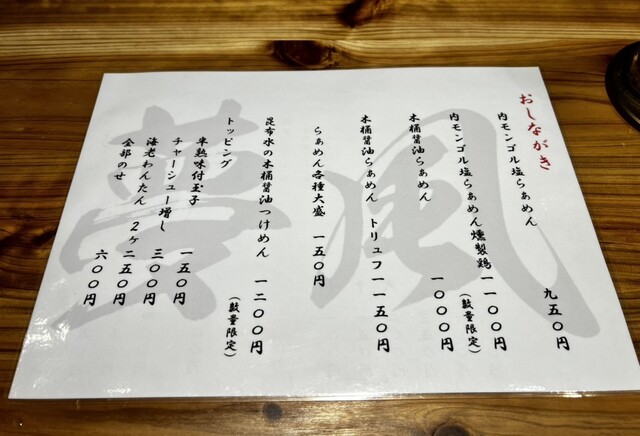 おしながき
内モンゴル塩らぁめん 九五〇円
内モンゴル塩らぁめん燻製鶏 一一〇〇円
(数量限定)
木桶醤油らぁめん 一〇〇〇円
木桶醤油らぁめん トリュフ 一一五〇円
らぁめん各種大盛 一五〇円
昆布水の木桶醤油つけめん 一二〇〇円
(数量限定)
トッピング
半熟味付玉子 一五〇円
チャーシュー増し 三〇〇円
海老わんたん 2ヶ 二五〇円
全部のせ 六〇〇円
風
夢